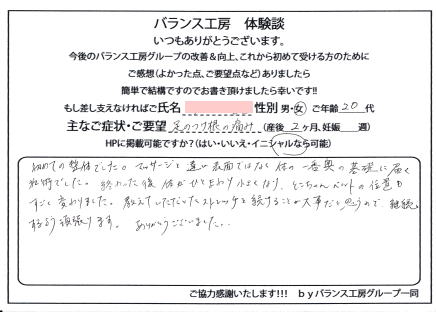 バランス工房　体験談
いつもありがとうございます。
今後のバランス工房グループの改善＆向上、これから初めて受ける方のために
ご感想（よかった点、ご要望点など）ありましたら
簡単で結構ですのでお書き頂けましたら幸いです!!
もし差し支えなければご氏名　性別 男・女　ご年齢 20 代
主なご症状・ご要望 足のつけ根の痛み（産後 2ヶ月、妊娠　週）
HPに掲載可能ですか？（はい・いいえ・イニシャルなら可能）
初めての整体でした。マッサージと違い表面ではなく体の一番奥の基礎に届く
施術でした。終わった後 体がひとまわり小さくなり、とこちゃんベルトの位置も
すごく変わりました。教えていただいたストレッチを続けることが大事だと思うので、継続
するよう頑張ります。ありがとうございました...
ご協力感謝いたします!!!　ｂｙバランス工房グループ一同